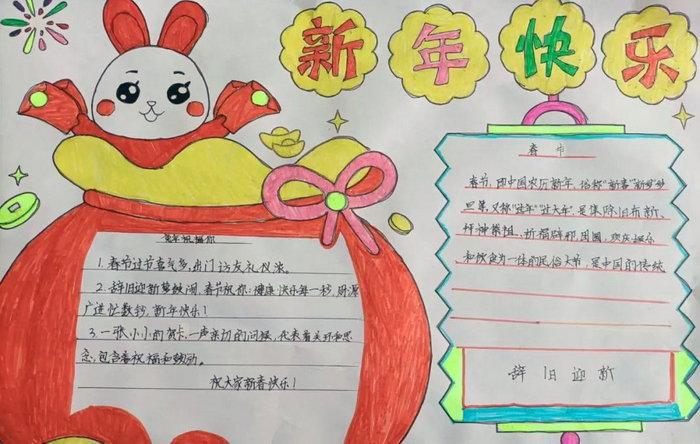 新年快乐
兔年祝福你
1. 春节过节喜气多，出门访友礼仪浓。
2. 辞旧迎新莫嫌闹，春节祝你：健康快乐每一秒，财源
广进忙数钞，新年快乐！
3. 一张小小的贺卡，一声亲切的问候，代表着关怀和思
念，包含着祝福和鼓励。
祝大家新春快乐！
春节
春节，即中国农历新年，俗称"新春""新岁""岁
旦"等，又称"过年""过大年"，是集除旧布新、
拜神祭祖、祈福辟邪、团圆、欢庆娱乐
和饮食为一体的民俗大节，是中国的传统
辞旧迎新